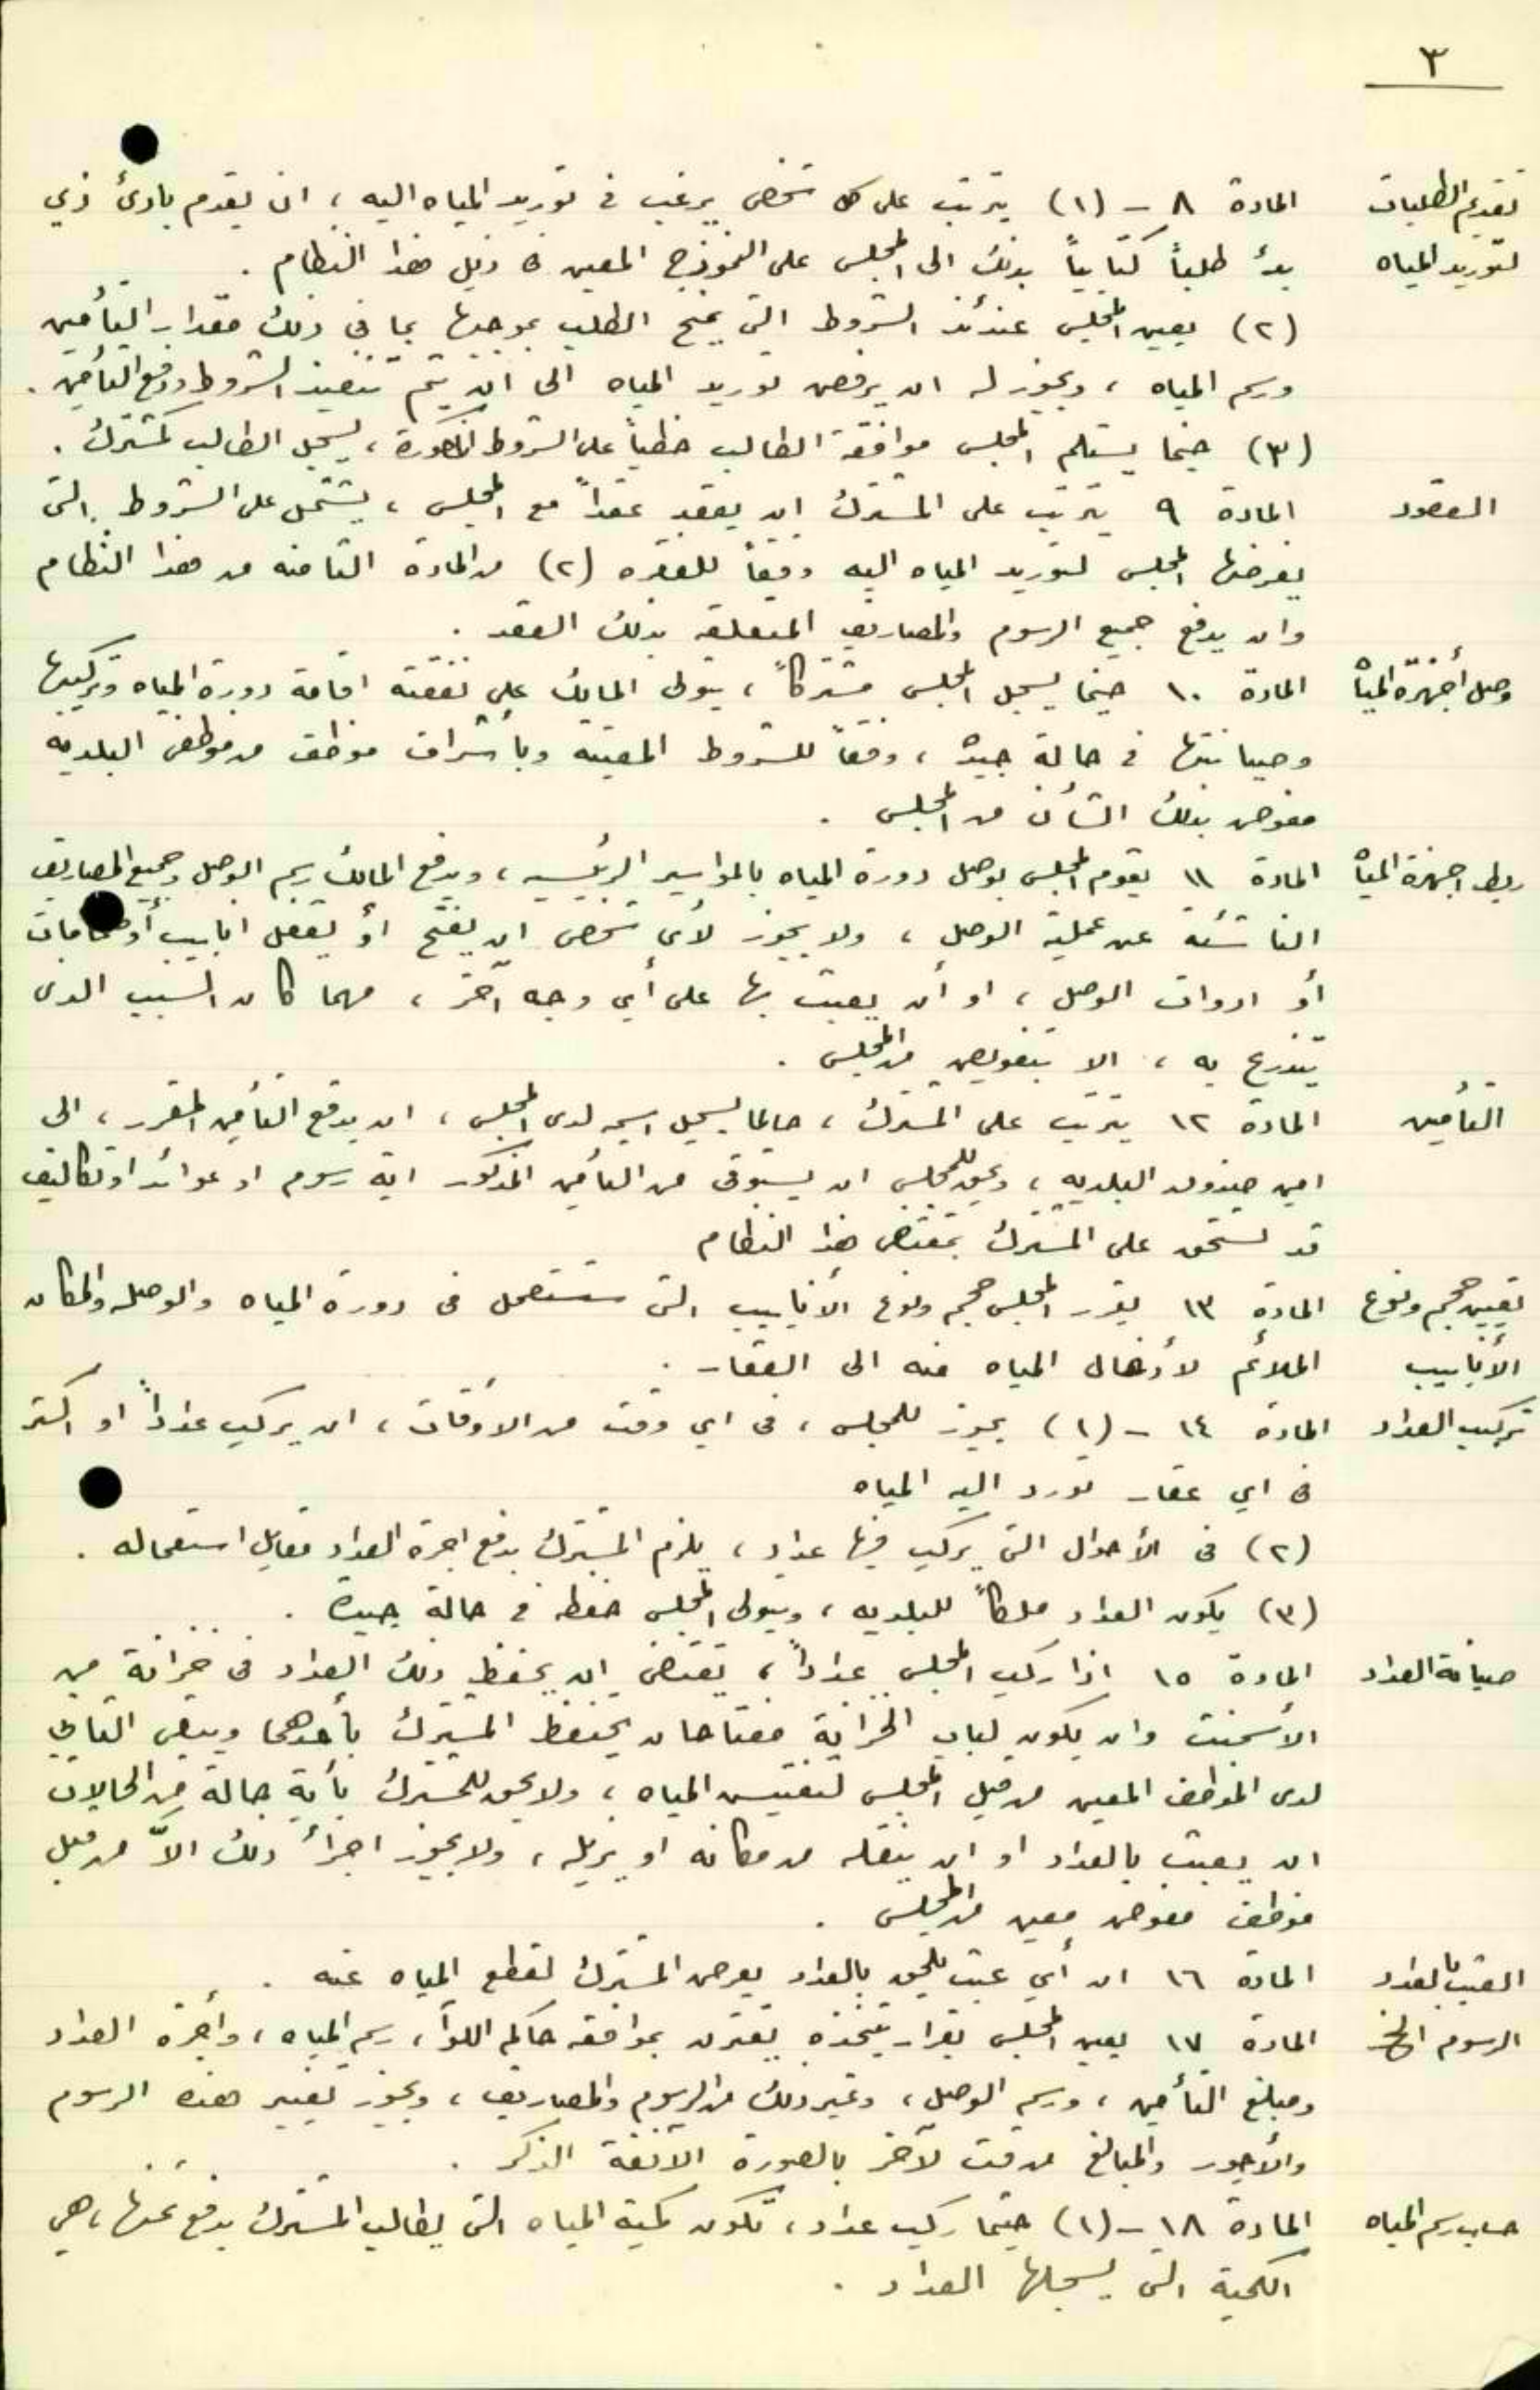 ٣
تقديم الطلبات المادة ٨ - (١) يترتب على كل شخص يرغب في توريد المياه اليه ، ان يقدم بادئ ذي
لتوريد المياه بدء طلباً كتابياً بذلك الى المجلس على النموذج المعين في ذيل هذا النظام .
(٢) يعين المجلس عندئذ الشروط التي يمنح الطلب بموجبها بما في ذلك مقدار التأمين
ورسم المياه ، ويجوز له ان يرفض توريد المياه الى ان يتم تنفيذ الشروط ودفع التأمين .
(٣) حينما يستلم المجلس موافقة الطالب خطياً على الشروط المذكورة ، يسجل الطالب كمشترك .
العقود المادة ٩ يترتب على المشترك ان يعقد عقداً مع المجلس ، يشتمل على الشروط التي
يفرضها المجلس لتوريد المياه اليه وفقاً للفقره (٢) من المادة الثامنه من هذا النظام
وان يدفع جميع الرسوم والمصاريف المتعلقه بذلك العقد .
وصل أجهزة المياه المادة ١٠ حينما يسجل المجلس مشتركاً ، يتولى المالك على نفقته اقامة دورة المياه وتركيبها
وصيانتها في حالة جيدة ، وفقاً للشروط المعينة وبأشراف موظف من موظفي البلدية
مفوض بذلك الشأن من المجلس .
ربط اجهزة المياه المادة ١١ يقوم المجلس بوصل دورة المياه بالمواسير الرئيسيه ، ويدفع المالك رسم الوصل وجميع المصاريف
الناشئة عن عملية الوصل ، ولا يجوز لأي شخص ان يفتح او يقفل انابيب أو صمامات
أو ادوات الوصل ، او أن يعبث بها على أي وجه آخر ، مهما كان السبب الذي
يتذرع به ، الا بتفويض من المجلس .
التأمين المادة ١٢ يترتب على المشترك ، حالما يسجل اسمه لدى المجلس ، ان يدفع التأمين المقرر ، الى
امين صندوق البلديه ، ويحق للمجلس ان يستوفى من التأمين المذكور اية رسوم او عوائد او تكاليف
قد تستحق على المشترك بمقتضى هذا النظام
تعيين حجم ونوع المادة ١٣ يقرر المجلس حجم ونوع الأنابيب التي ستستعمل في دورة المياه والوصله والمكان
الأنابيب الملائم لأدخال المياه منه الى العقار .
تركيب العداد المادة ١٤ - (١) يجوز للمجلس ، في اي وقت من الأوقات ، ان يركب عداداً او اكثر
في اي عقار تورد اليه المياه
(٢) في الأحوال التي يركب فيها عداد ، يلزم المشترك بدفع اجرة العداد مقابل استعماله .
(٣) يكون العداد ملكاً للبلديه ، ويتولى المجلس حفظه في حالة جيدة .
صيانة العداد المادة ١٥ اذا ركب المجلس عداداً ، يقتضى ان يحفظ ذلك العداد في خزانة من
الأسمنت وان يكون لباب الخزانة مفتاحان يحتفظ المشترك بأحدهما ويبقى الثاني
لدى الموظف المعين من قبل المجلس لتفتيش المياه ، ولا يحق للمشترك بأية حالة من الحالات
ان يعبث بالعداد او ان ينقله من مكانه او يزيله ، ولا يجوز اجراء ذلك الاّ من قبل
موظف مفوض معين من المجلس .
العبث بالعداد المادة ١٦ ان أي عبث يلحق بالعداد يعرض المشترك لقطع المياه عنه .
الرسوم الخ المادة ١٧ يعين المجلس بقرار يتخذه يقترن بموافقه حاكم اللواء ، رسم المياه ، وأجرة العداد
ومبلغ التأمين ، ورسم الوصل ، وغير ذلك من الرسوم والمصاريف ، ويجوز تغيير هذه الرسوم
والأجور والمبالغ من وقت لآخر بالصورة الآنفة الذكر .
حساب رسم المياه المادة ١٨ - (١) حيثما ركب عداد ، تكون كمية المياه التي يطالب المشترك بدفع ثمنها ، هي
الكمية التي يسجلها العداد .